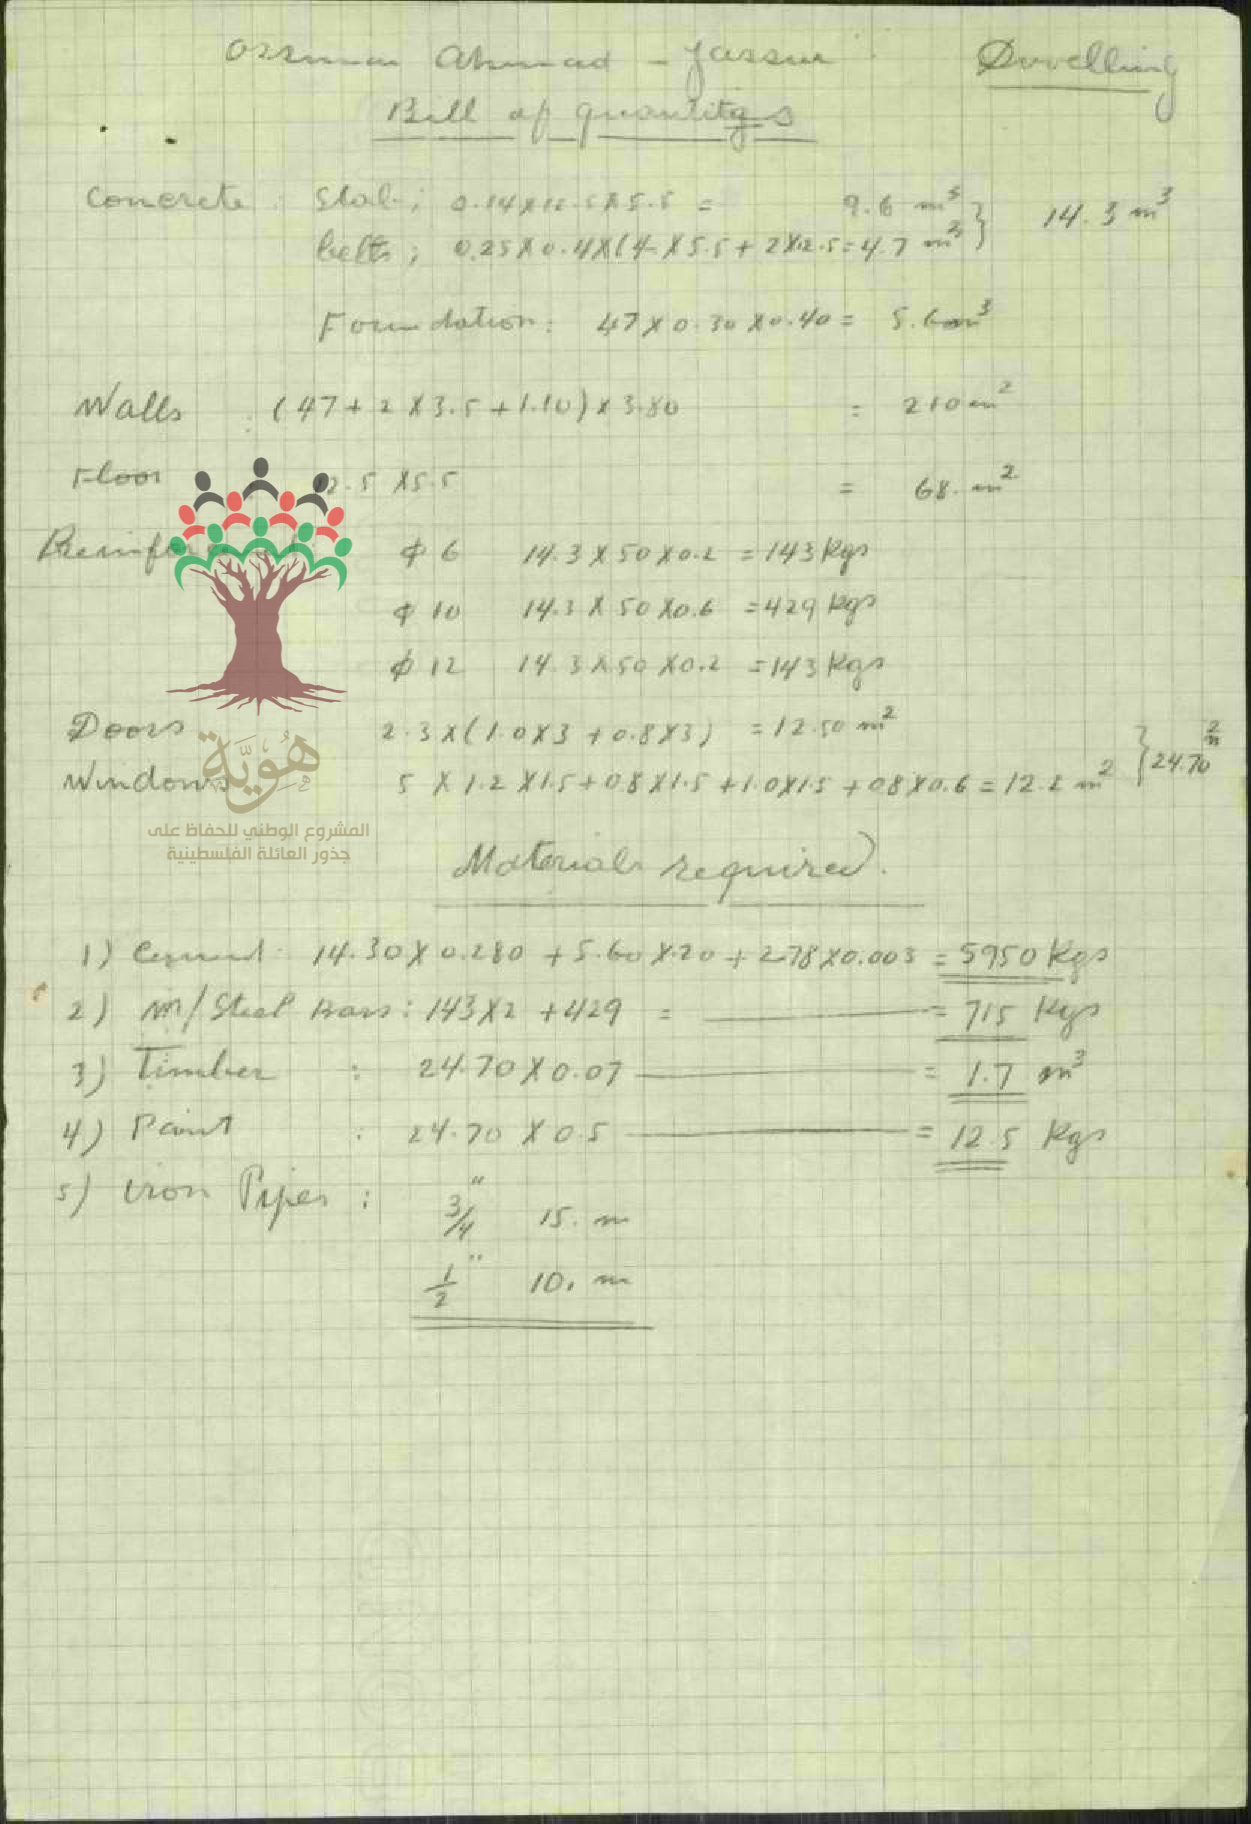 Osman Ahmad - Jassur Dwelling
Bill of quantitys
Concrete : Slab ; 0.14 X 12.5 X 5.5 = 9.6 m³ } 14.3 m³
belts ; 0.25 X 0.4 X (4 X 5.5 + 2 X 12.5 = 4.7 m³
Foundation : 47 X 0.30 X 0.40 = 5.6 m³
Walls (47 + 2 X 3.5 + 1.10) X 3.80 = 210 m²
Floor 12.5 X 5.5 = 68. m²
ɸ 6 14.3 X 50 X 0.2 = 143 Kgs
ɸ 10 14.3 X 50 X 0.6 = 429 Kgs
ɸ 12 14.3 X 50 X 0.2 = 143 Kgs
Doors 2.3 X (1.0 X 3 + 0.8 X 3) = 12.50 m² } 24.70 m²
Windows 5 X 1.2 X 1.5 + 08 X 1.5 + 1.0 X 1.5 + 08 X 0.6 = 12.2 m²
هُوِيَّة
المشروع الوطني للحفاظ على
جذور العائلة الفلسطينية
Materials required.
1) Cement : 14.30 X 0.280 + 5.60 X .20 + 278 X 0.003 = 5950 Kgs
2) m/Steel Bars : 143 X 2 + 429 = = 715 Kgs
3) Timber : 24.70 X 0.07 = 1.7 m³
4) Paint : 24.70 X 0.5 = 12.5 Kgs
5) Iron Pipes : 3/4" 15. m
1/2" 10. m